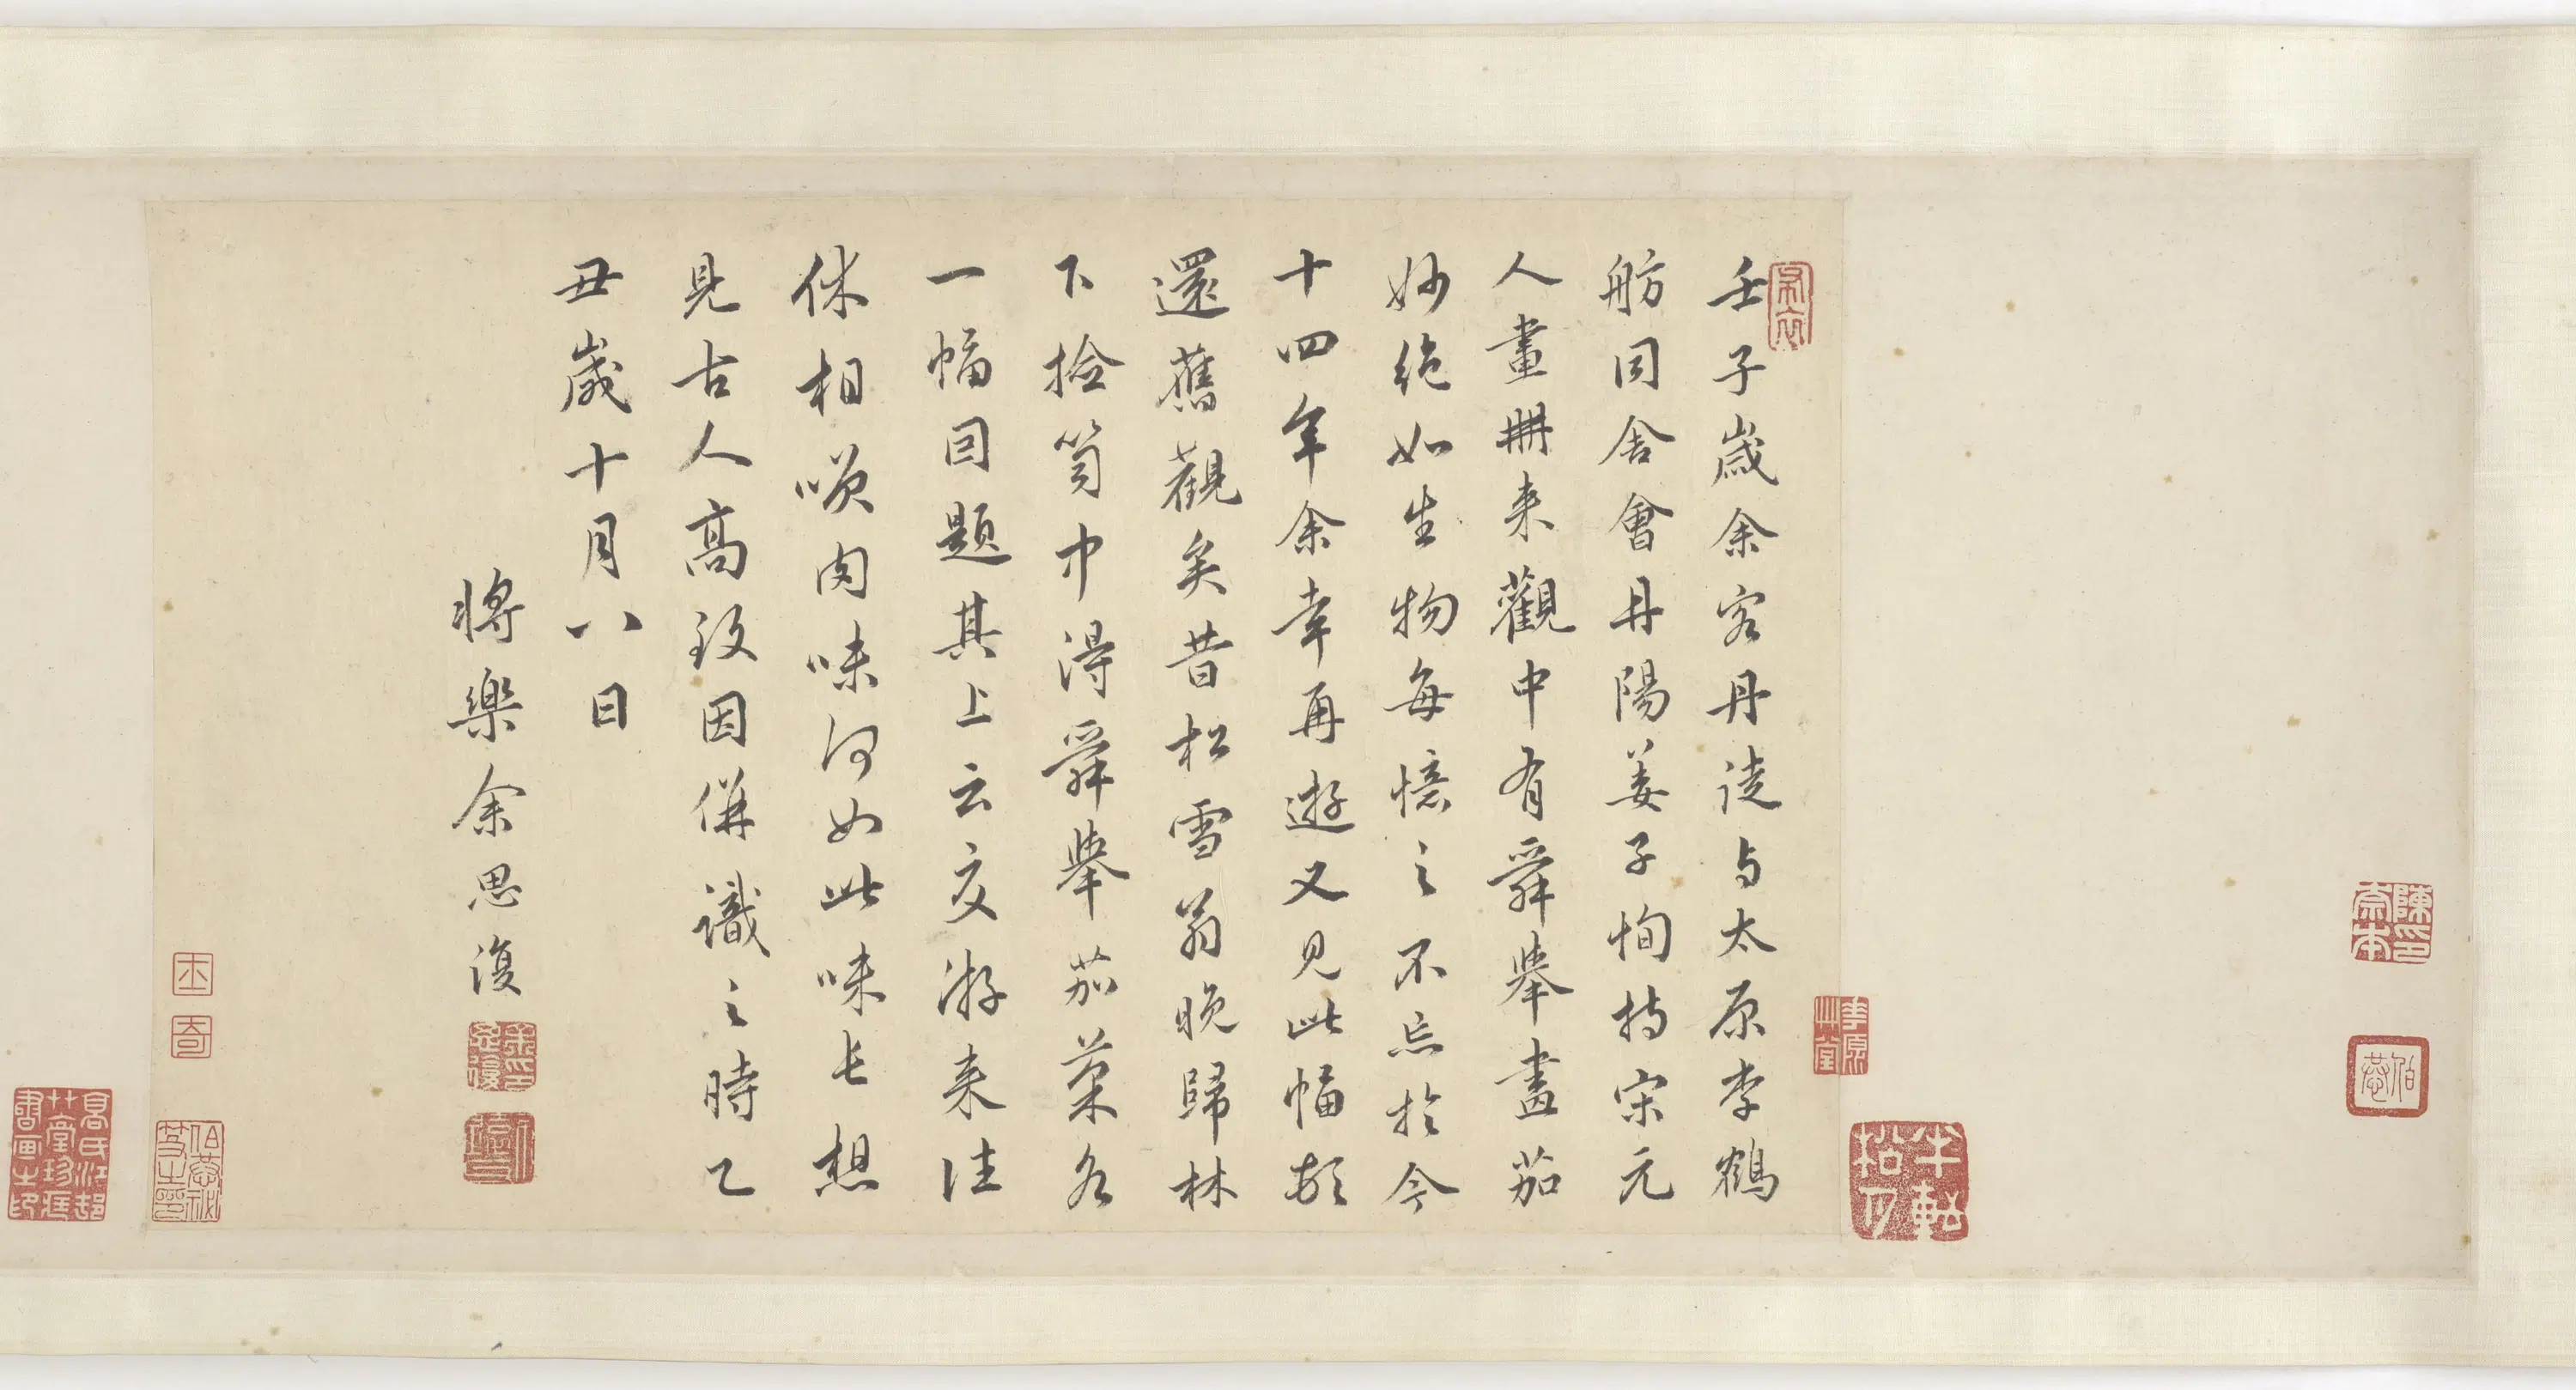 壬子歲余客丹徒与太原李鶴
舫同舍會丹陽姜子恂持宋元
人畫冊来觀中有舜舉畫茄
妙絶如生物每憶之不忘於今
十四年余幸再遊又見此幅頓
還舊觀矣昔松雪翁晚歸林
下撿笥中得舜舉茄菜各
一幅因題其上云交游来往
休相笑肉味何如此味长想
見古人高致因倂識之時乙
丑歲十月八日
將樂余思復